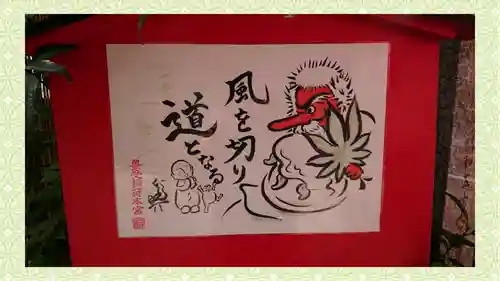 風を切り
道となる